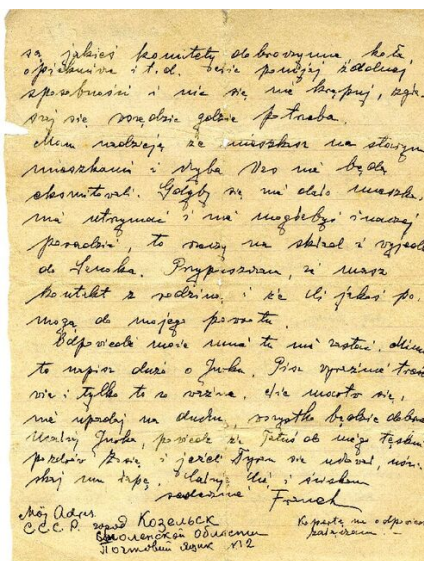 są jakieś komitety dobroczynne koła
opiekuńcze i t.d. nie pomijaj żadnej
sposobności i nic się nie krępuj, zgła
szaj się wszędzie gdzie potrzeba.
Mam nadzieję że mieszkasz na starym
mieszkaniu i chyba Was nie będą
eksmitowali. Gdyby się nie dało mieszka
nia utrzymać i nie mogłabyś inaczej
poradzić, to
do Przypuszczam, że masz
kontakt z rodziną i że Ci jakoś po
mogą do mojego powrotu.
Odpowiedź może mnie tu nie zastać, mimo
to napisz dużo o Jurku. Pisz wyraźnie
i tylko to co ważne. Nie martw się,
nie upadaj na duchu, wszystko będzie dobrze
Jurka, powiedz że Tatuś do niego tęskni
pozdrów i jeżeli
Całuję Cię i ściskam
serdecznie Franek
Mój Adres
С.С.С.Р. город Козельск
Смоленской Области
Почтовый Ящик № 12
Kopertę na odpowiedź
załączam. —